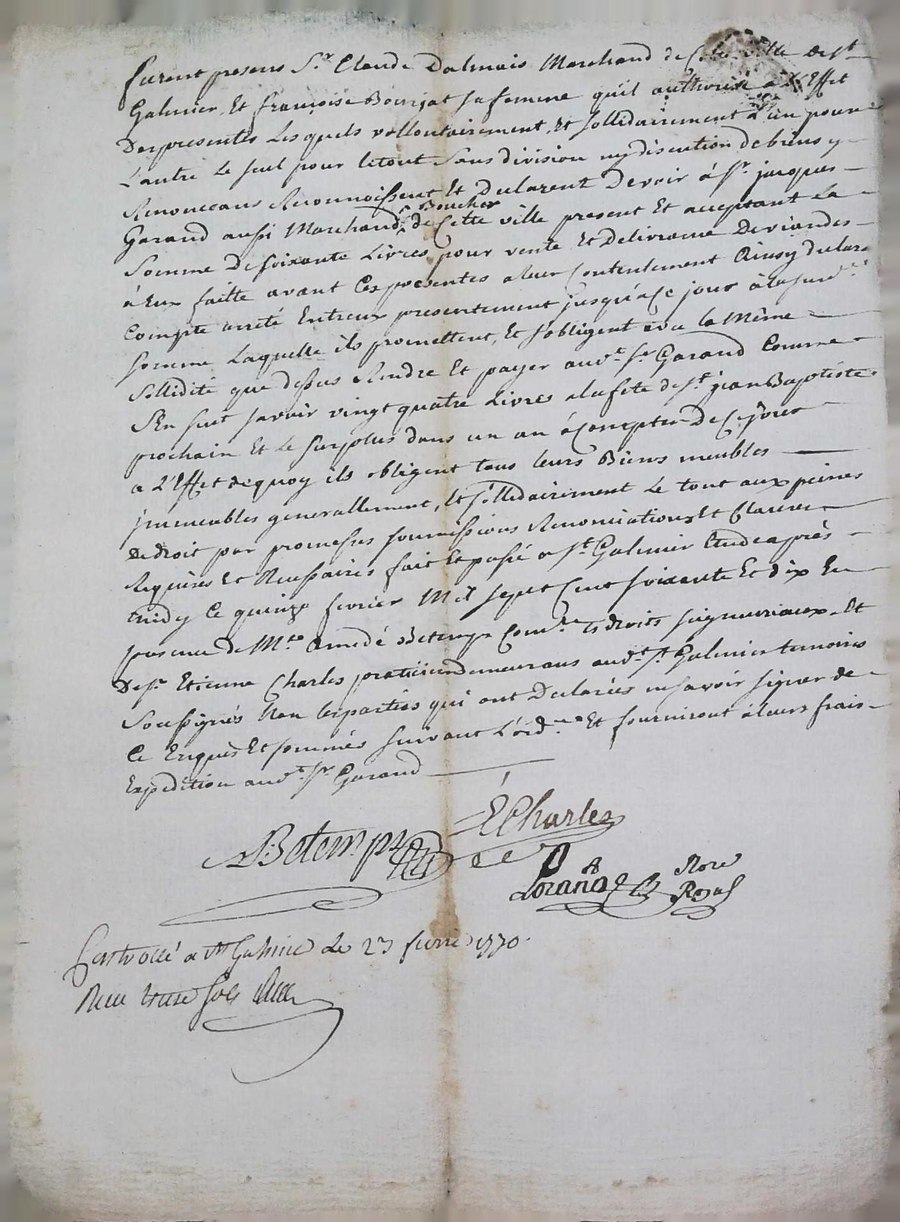 furent presens Sr. Claude Dalmais Marchand de Cette ville de st
Galmier, Et françoise Bourjat sa femme qu'il authorise a L'Effet
Des presentes Lesquels vollontairement, Et sollidairement L'un pour
Lautre Le seul pour Letout Sans division ny discution de biens y
Renonceans Reconnoissent Et Declarent Devoir à Sr. jacques
Garand aussi Marchand & Boucher de Cette ville present Et acceptant La
Somme De soixante Livres pour vente Et Delivrance De viandes
à Eux faitte avant Ces presentes a leur Contentement Ainsy declaré
Compte arreté Entreux presentement jusqu'a Ce jour à la susd.
somme Laquelle ils promettent, Et s'obligent avec la Même
Sollidité que dessus Rendre Et payer aud. Sr. Garand Comme
s'En suit savoir vingt quatre Livres a la fete de St. jean Baptiste
prochain Et Le surplus dans un an à Compter De Ce jour
a L'Effet de quoy ils obligent tous leurs Biens meubles
immeubles generallement, Et sollidairement Le tout aux peines
de droit par promesses soumissions Renonciations Et Clauses
Requises Et Necessaires fait Et passé a St. Galmier Etude après
midy Ce quinze fevrier Mil sept Cent soixante Et dix En
presence De Mre. Amedé Betemps Comre. Es droits seigneuriaux Et
De Sr. Etienne Charles praticien demeurans aud. St. Galmier temoins
Soussignés Non Les parties qui ont Declarées ne savoir signer de
Ce Enquis Et sommés suivant L'ord.ce Et fourniront à leurs frais
Expedition aud. Sr. Garand
A. Betemps
E Charles
Nore
Royal
Controllé a St Galmier le 27 fevrier 1770.
Recu treise sols